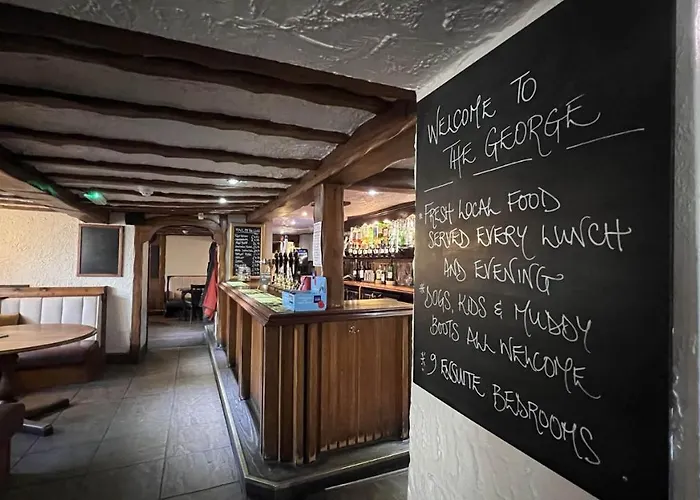 WELCOME TO
THE GEORGE
* FRESH LOCAL FOOD
SERVED EVERY LUNCH
AND EVENING
* DOGS, KIDS & MUDDY
BOOTS ALL WELCOME
* 9 ENSUITE BEDROOMS.